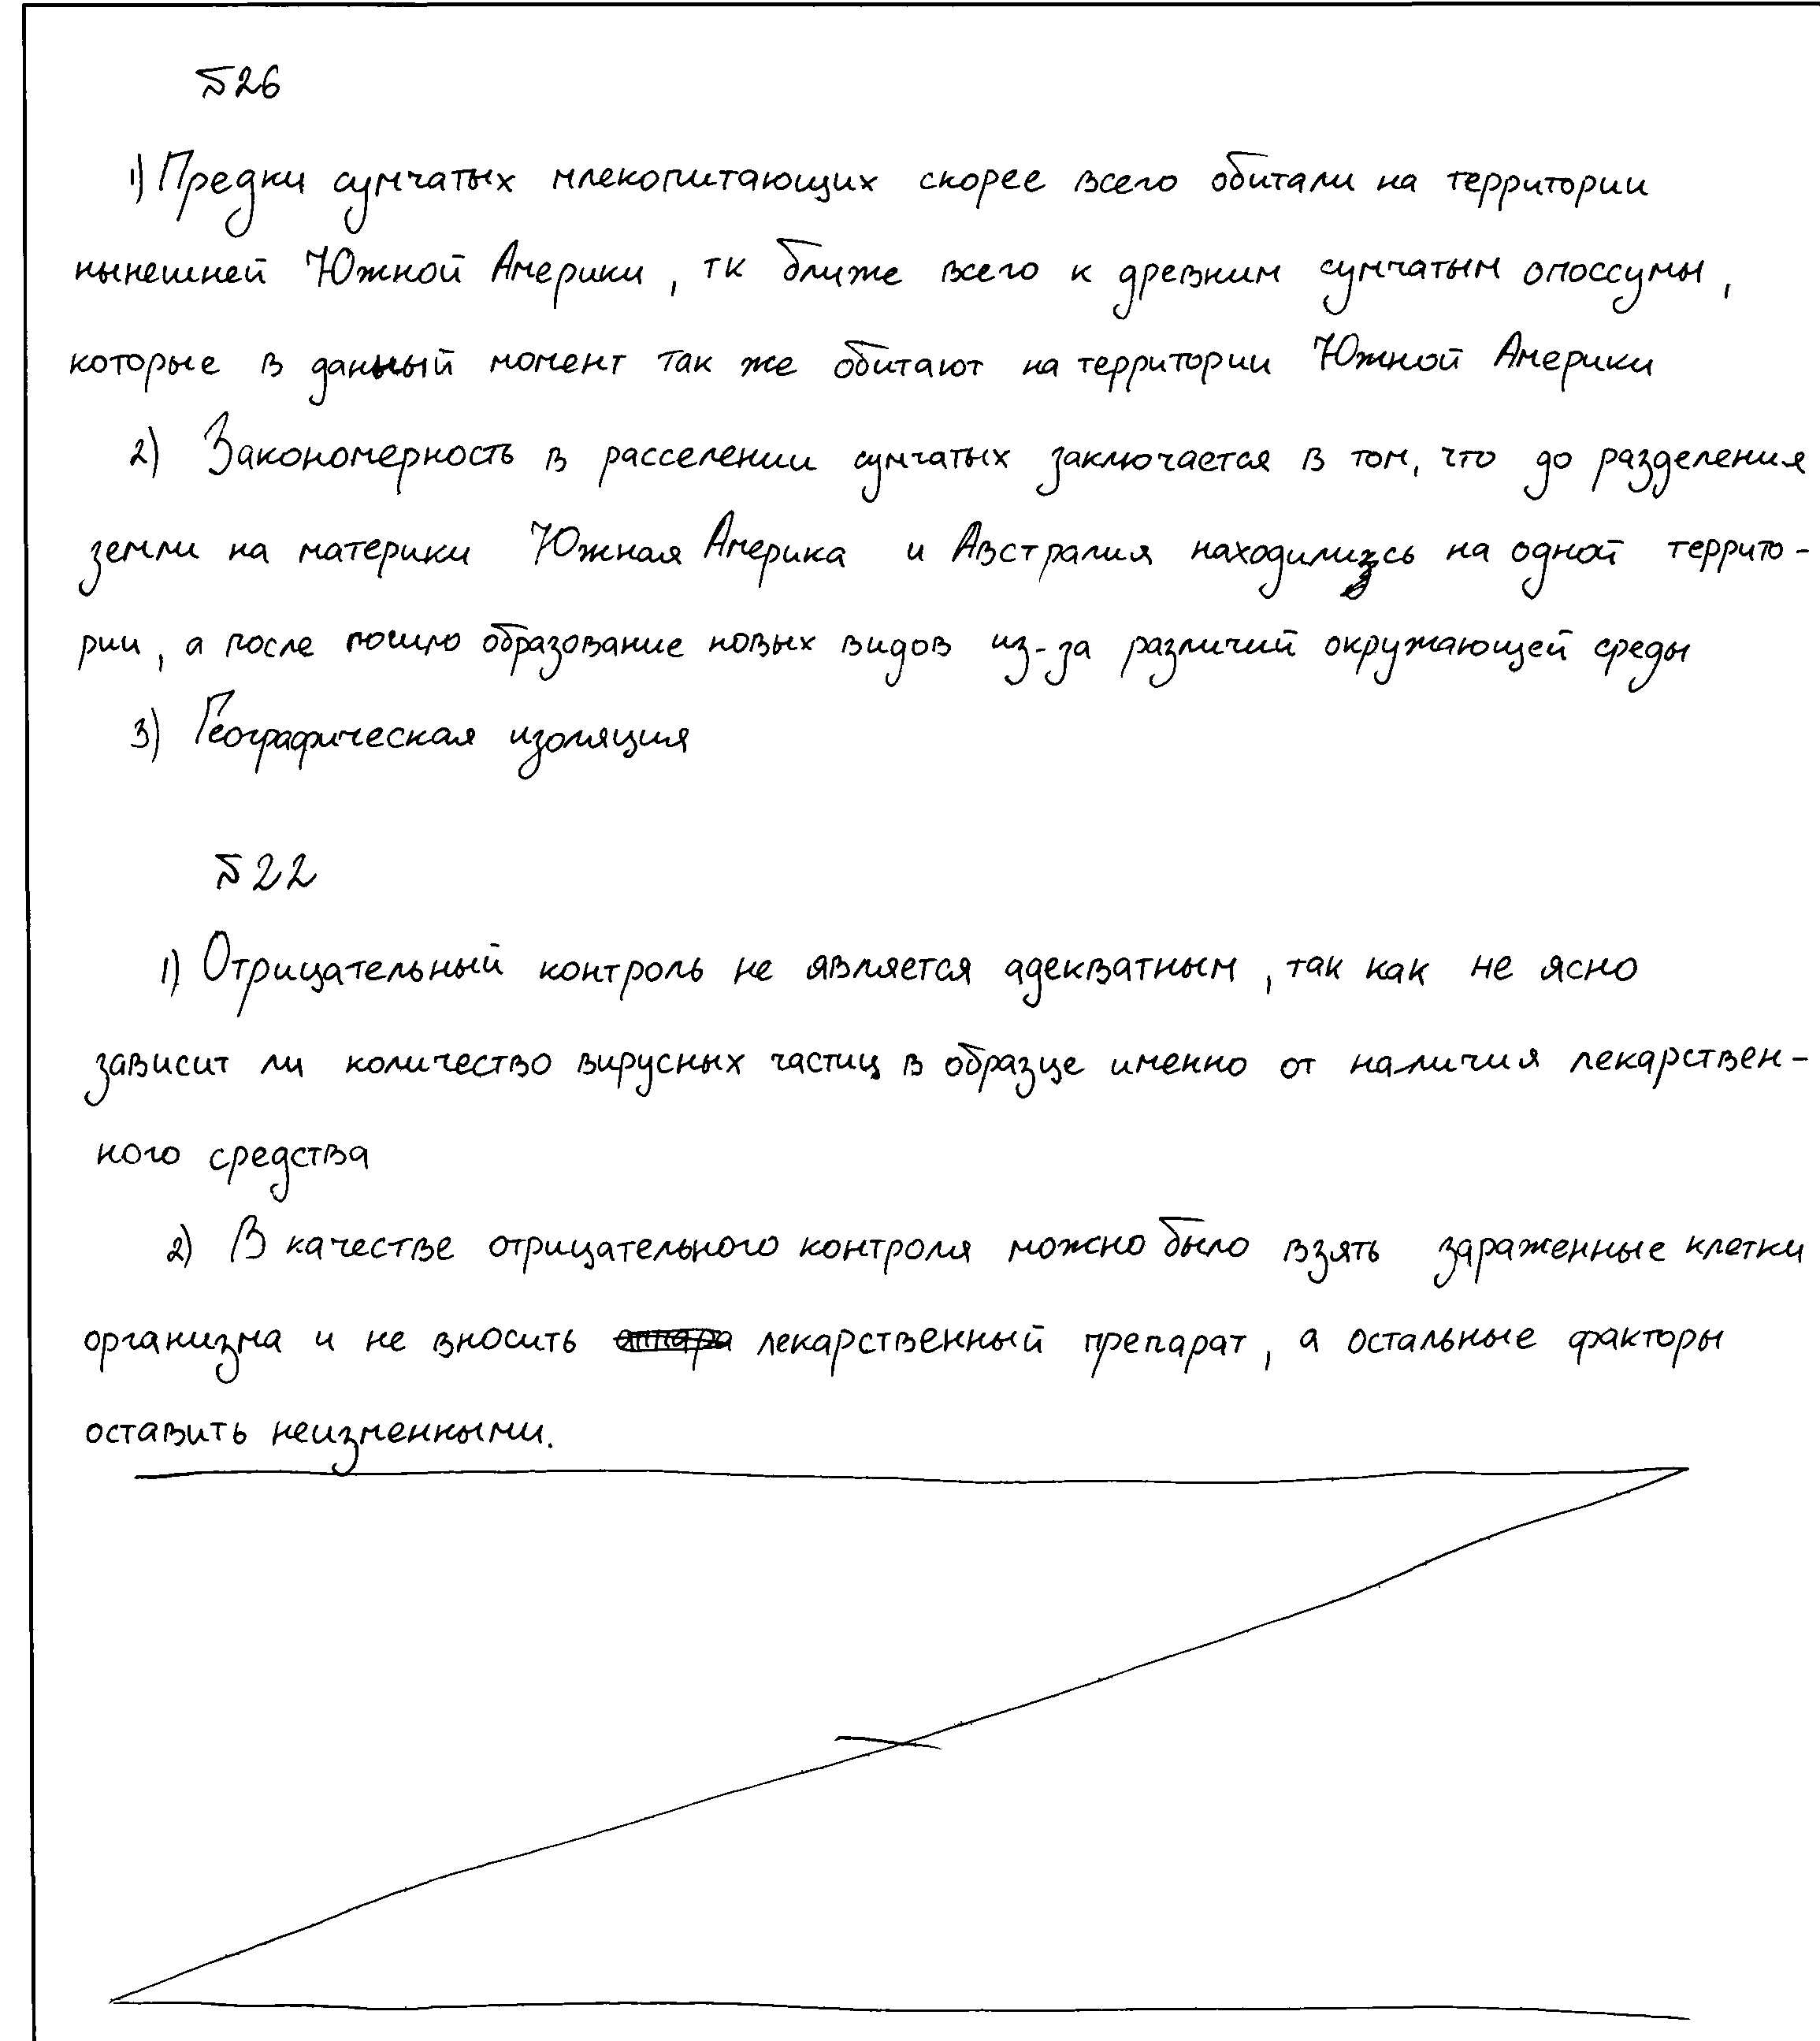 №26
1) Предки сумчатых млекопитающих скорее всего обитали на территории
нынешней Южной Америки, тк ближе всего к древним сумчатым опоссумы,
которые в данный момент так же обитают на территории Южной Америки
2) Закономерность в расселении сумчатых заключается в том, что до разделения
земли на материки Южная Америка и Австралия находились на одной террито-
рии, а после пошло образование новых видов из-за различий окружающей среды
3) Географическая изоляция
№22
1) Отрицательный контроль не является адекватным, так как не ясно
зависит ли количество вирусных частиц в образце именно от наличия лекарствен-
ного средства
2) В качестве отрицательного контроля можно было взять зараженные клетки
организма и не вносить лекарственный препарат, а остальные факторы
оставить неизменными.